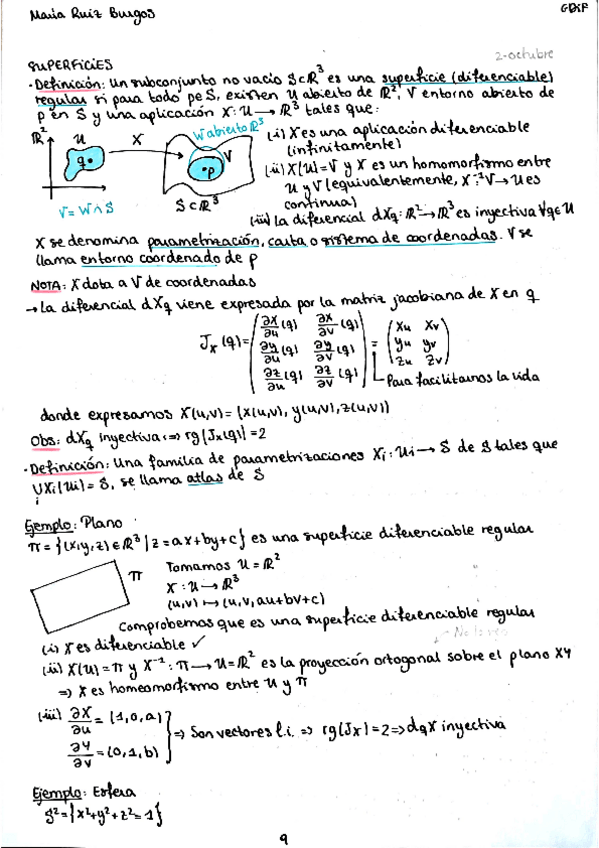 María Ruiz Burgos
GDIF
2-octubre
SUPERFICIES
·Definición: Un subconjunto no vacío S⊂ℝ³ es una superficie (diferenciable)
regular si para todo p∈S, existen U abierto de ℝ², V entorno abierto de
p en S y una aplicación X: U → ℝ³ tales que:
ℝ² U X W abierto ℝ³
(i) X es una aplicación diferenciable
(infinitamente)
q· ·p V
(ii) X(U)=V y X es un homomorfismo entre
U y V (equivalentemente, X⁻¹:V→U es
continua)
V=W∩S S⊂ℝ³
(iii) La diferencial dXq: ℝ²→ℝ³ es inyectiva ∀q∈U
X se denomina parametrización, carta o sistema de coordenadas. V se
llama entorno coordenado de p
NOTA: X dota a V de coordenadas
→ La diferencial dXq viene expresada por la matriz jacobiana de X en q
Jx(q)= ( ∂x/∂u (q) ∂x/∂v (q) ; ∂y/∂u (q) ∂y/∂v (q) ; ∂z/∂u (q) ∂z/∂v (q) ) = ( xu xv ; yu yv ; zu zv )
Para facilitarnos la vida
donde expresamos X(u,v)=(x(u,v), y(u,v), z(u,v))
Obs: dXq inyectiva ⟺ rg(Jx(q))=2
·Definición: Una familia de parametrizaciones Xi: Ui → S de S tales que
∪Xi(Ui)=S, se llama atlas de S
i
Ejemplo: Plano
π={(x,y,z)∈ℝ³ | z=ax+by+c} es una superficie diferenciable regular
π
Tomamos U=ℝ²
X: U → ℝ³
(u,v) ↦ (u,v,au+bv+c)
Comprobemos que es una superficie diferenciable regular
(i) X es diferenciable ✓
(ii) X(U)=π y X⁻¹: π → U=ℝ² es la proyección ortogonal sobre el plano XY
⇒ X es homeomorfismo entre U y π
(iii) ∂X/∂u = (1,0,a)
∂Y/∂v = (0,1,b)
⇒ Son vectores l.i. ⇒ rg(Jx)=2 ⇒ dqX inyectiva
Ejemplo: Esfera
S²={x²+y²+z²=1}
9